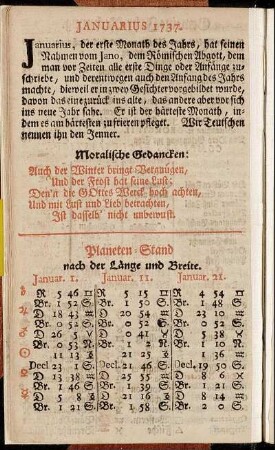 JANUARIUS 1737.
Januarius, der erste Monath des Jahrs, hat seinen
Nahmen vom Jano, dem Römischen Abgott, dem
man vor Zeiten alle erste Dinge oder Anfänge zu-
schriebe, und derentwegen auch den Anfang des Jahrs
machte, dieweil er in zwey Gesichter vorgebildet wurde,
davon das eine zurück ins alte, das andere aber vor sich
ins neue Jahr sahe. Er ist der härteste Monath, in-
dem es am härtesten zu frieren pfleget. Wir Teutschen
nennen ihn den Jenner.
Moralische Gedancken:
Auch der Winter bringt Vergnügen,
Und der Frost hat seine Lust;
Denn die GOttes Werck hoch achten,
Und mit Lust und Lieb betrachten,
Ist dasselb' nicht unbewust.
Planeten-Stand
nach der Länge und Breite.
Januar. 1. Januar. 11. Januar. 21.
R 5 46 ♊ R 5 15 ♊ R 4 54 ♊
Br. 1 52 S. Br. 1 50 S. Br. 1 48 S.
D 18 43 ♒ D 20 54 ♒ D 23 10 ♒
Br. 0 52 S. Br. 0 52 S. Br. 0 52 S.
Br. 0 53 N. Br. 1 2 N. Br. 1 10 N.
Decl 23 1 S. Decl 21 46 S. Decl. 19 50 S.
Br. 1 46 S. Br. 1 39 S.
Br. 1 21 S. Br. 1 58 S. Br. 2 0 S.